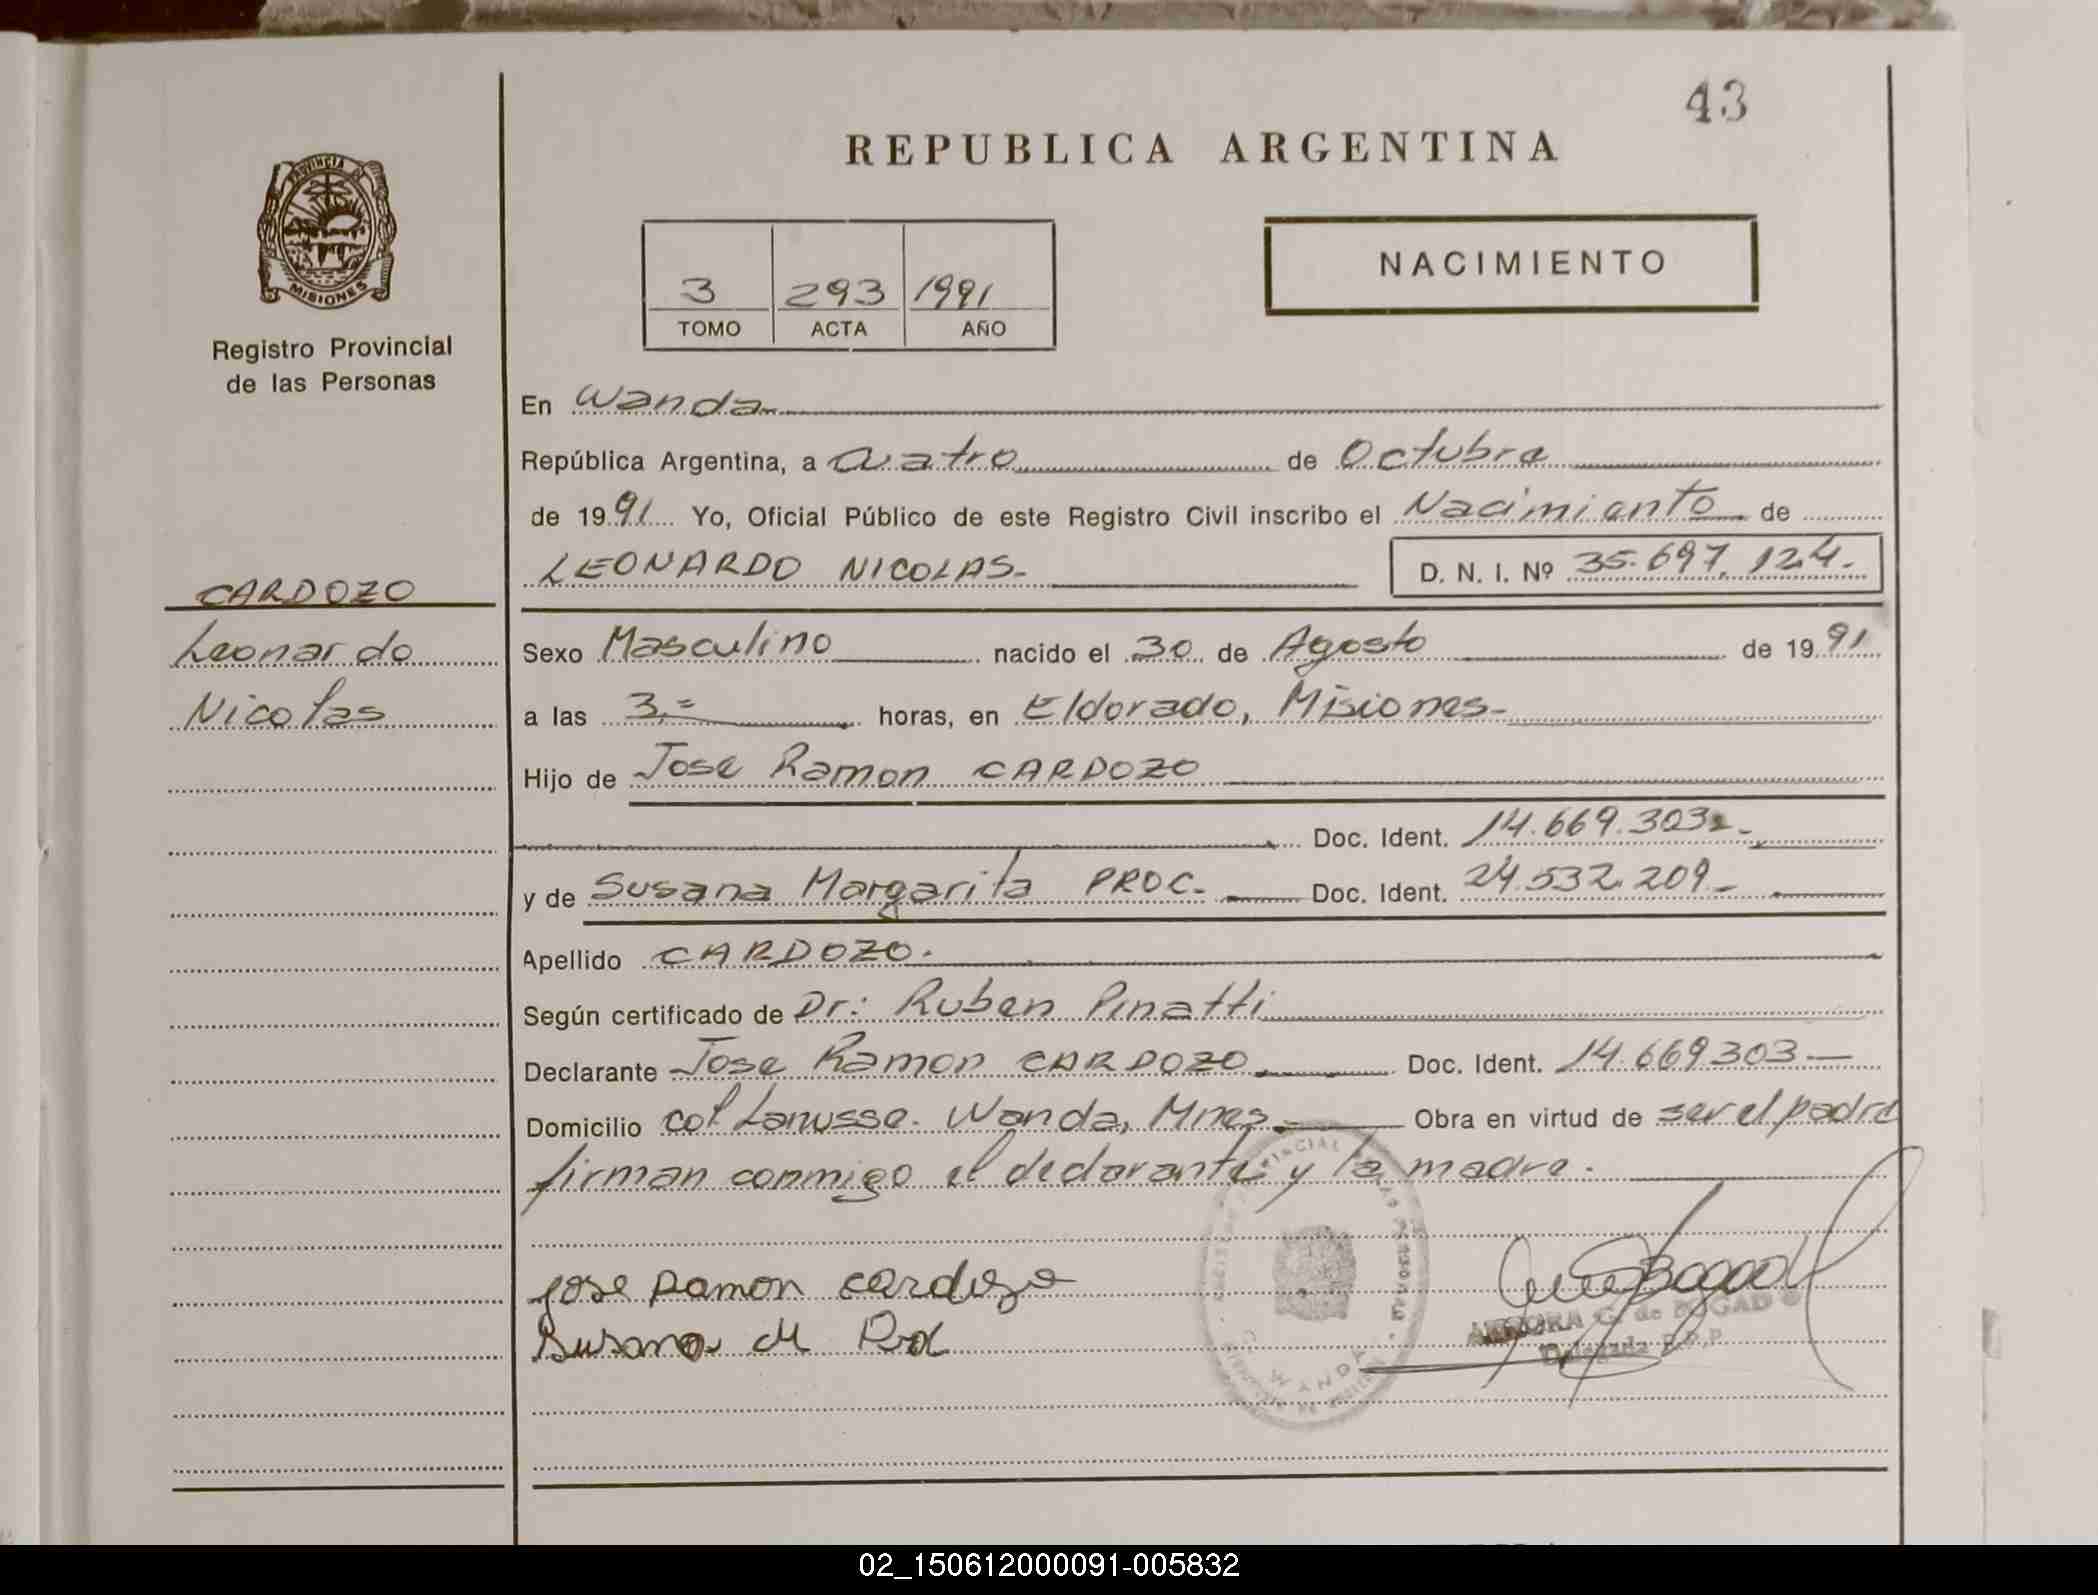 43
REPUBLICA ARGENTINA
PROVINCIA DE
MISIONES
Registro Provincial
de las Personas
3 293 1991
TOMO ACTA AÑO
NACIMIENTO
En Wanda
República Argentina, a cuatro de Octubre
de 1991 Yo, Oficial Público de este Registro Civil inscribo el Nacimiento de
LEONARDO NICOLAS.- D. N. I. Nº 35.697.124.-
CARDOZO
Leonardo
Nicolas
Sexo Masculino nacido el 30 de Agosto de 1991
a las 3.= horas, en Eldorado, Misiones-
Hijo de Jose Ramon CARDOZO
Doc. Ident. 14.669.303.-
y de Susana Margarita PROC.- Doc. Ident. 24.532.209.-
Apellido CARDOZO.
Según certificado de Dr: Ruben Pinatti
Declarante Jose Ramon CARDOZO Doc. Ident. 14.669.303-
Domicilio col Lanusse. Wanda, Mnes.- Obra en virtud de ser el padre
firman conmigo el declarante y la madre.
Jose Ramon cardozo
Susana M
G. de BOGADO
Delegada R.P.P.
WANDA
02_150612000091-005832